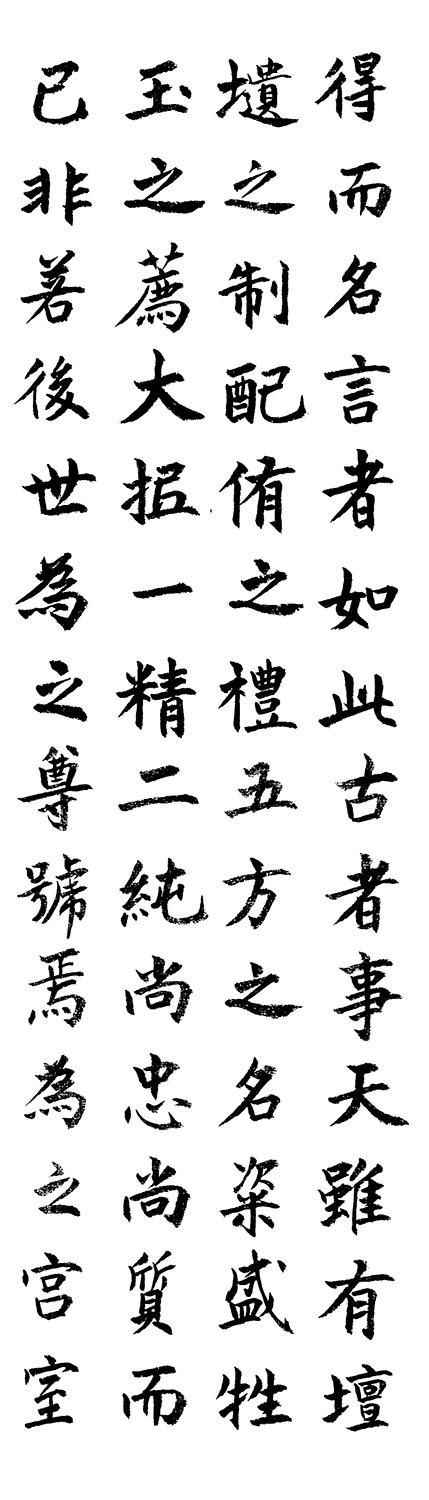 得而名言者如此古者事天雖有壇
壝之制配侑之禮五方之名粢盛牲
玉之薦大抵一精二純尚忠尚質而
已非若後世為之尊號焉為之宫室